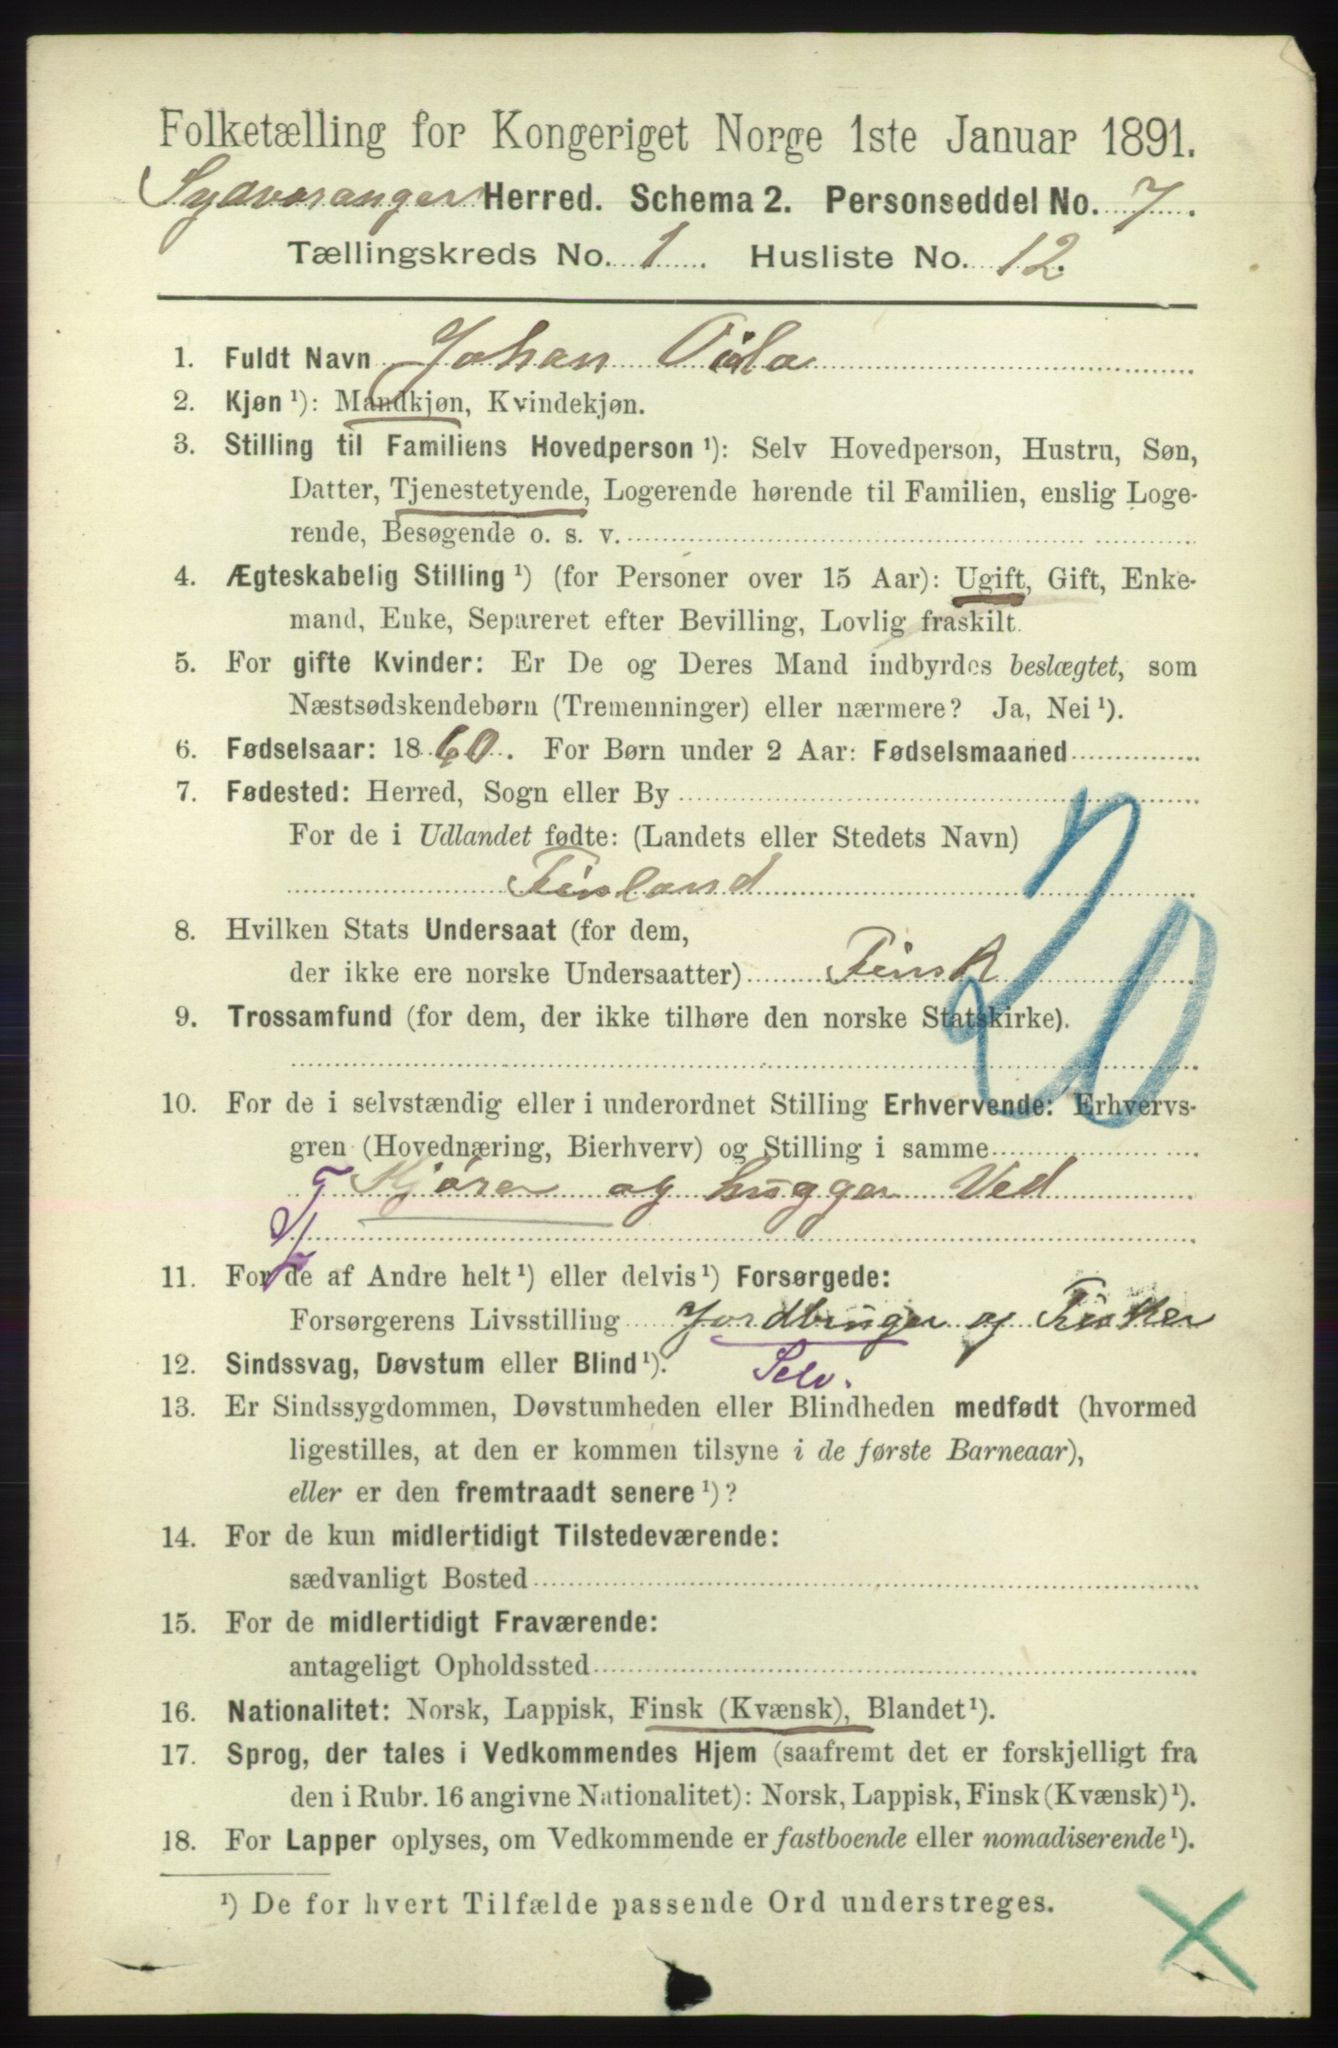 Folketælling for Kongeriget Norge 1ste Januar 1891.
Sydvaranger Herred. Schema 2. Personseddel No. 7.
Tællingskreds No. 1. Husliste No. 12.
1. Fuldt Navn Johan
2. Kjøn ¹): Mandkjøn, Kvindekjøn.
3. Stilling til Familiens Hovedperson ¹): Selv Hovedperson, Hustru, Søn,
Datter, Tjenestetyende, Logerende hørende til Familien, enslig Loge-
rende, Besøgende o. s. v.
4. Ægteskabelig Stilling ¹) (for Personer over 15 Aar): Ugift, Gift, Enke-
mand, Enke, Separeret efter Bevilling, Lovlig fraskilt.
5. For gifte Kvinder: Er De og Deres Mand indbyrdes beslægtet, som
Næstsødskendebørn (Tremenninger) eller nærmere? Ja, Nei ¹).
6. Fødselsaar: 1860. For Børn under 2 Aar: Fødselsmaaned
7. Fødested: Herred, Sogn eller By
For de i Udlandet fødte: (Landets eller Stedets Navn)
Finland
20
8. Hvilken Stats Undersaat (for dem,
der ikke ere norske Undersaatter) Finsk
9. Trossamfund (for dem, der ikke tilhøre den norske Statskirke).
10. For de i selvstændig eller i underordnet Stilling Erhvervende: Erhvervs-
gren (Hovednæring, Bierhverv) og Stilling i samme
Kjører og hugger Ved
11. For de af Andre helt ¹) eller delvis ¹) Forsørgede:
Forsørgerens Livsstilling Jordbruger og Fisker
12. Sindssvag, Døvstum eller Blind ¹). Selv.
13. Er Sindssygdommen, Døvstumheden eller Blindheden medfødt (hvormed
ligestilles, at den er kommen tilsyne i de første Barneaar),
eller er den fremtraadt senere ¹)?
14. For de kun midlertidigt Tilstedeværende:
sædvanligt Bosted
15. For de midlertidigt Fraværende:
antageligt Opholdssted
16. Nationalitet: Norsk, Lappisk, Finsk (Kvænsk), Blandet ¹).
17. Sprog, der tales i Vedkommendes Hjem (saafremt det er forskjelligt fra
den i Rubr. 16 angivne Nationalitet): Norsk, Lappisk, Finsk (Kvænsk) ¹).
18. For Lapper oplyses, om Vedkommende er fastboende eller nomadiserende ¹).
¹) De for hvert Tilfælde passende Ord understreges.